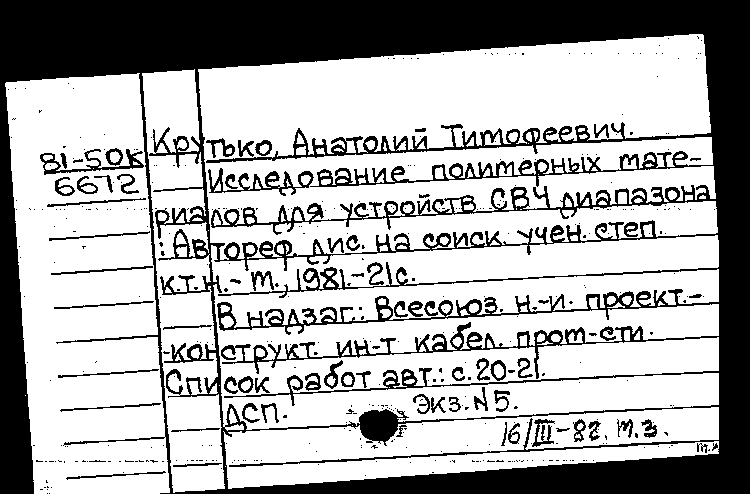 81-50К
6612
Крутько, Анатолий Тимофеевич.
Исследование полимерных мате-
риалов для устройств СВЧ диапазона
: Автореф. дис. на соиск. учен. степ.
к.т.н. - М., 1981. - 21с.
В надзаг.: Всесоюз. н.-и. проект.-
-конструкт. ин-т кабел. пром-сти.
Список работ авт.: с. 20-21.
ДСП. Экз. N 5.
16/III-82. т.з.